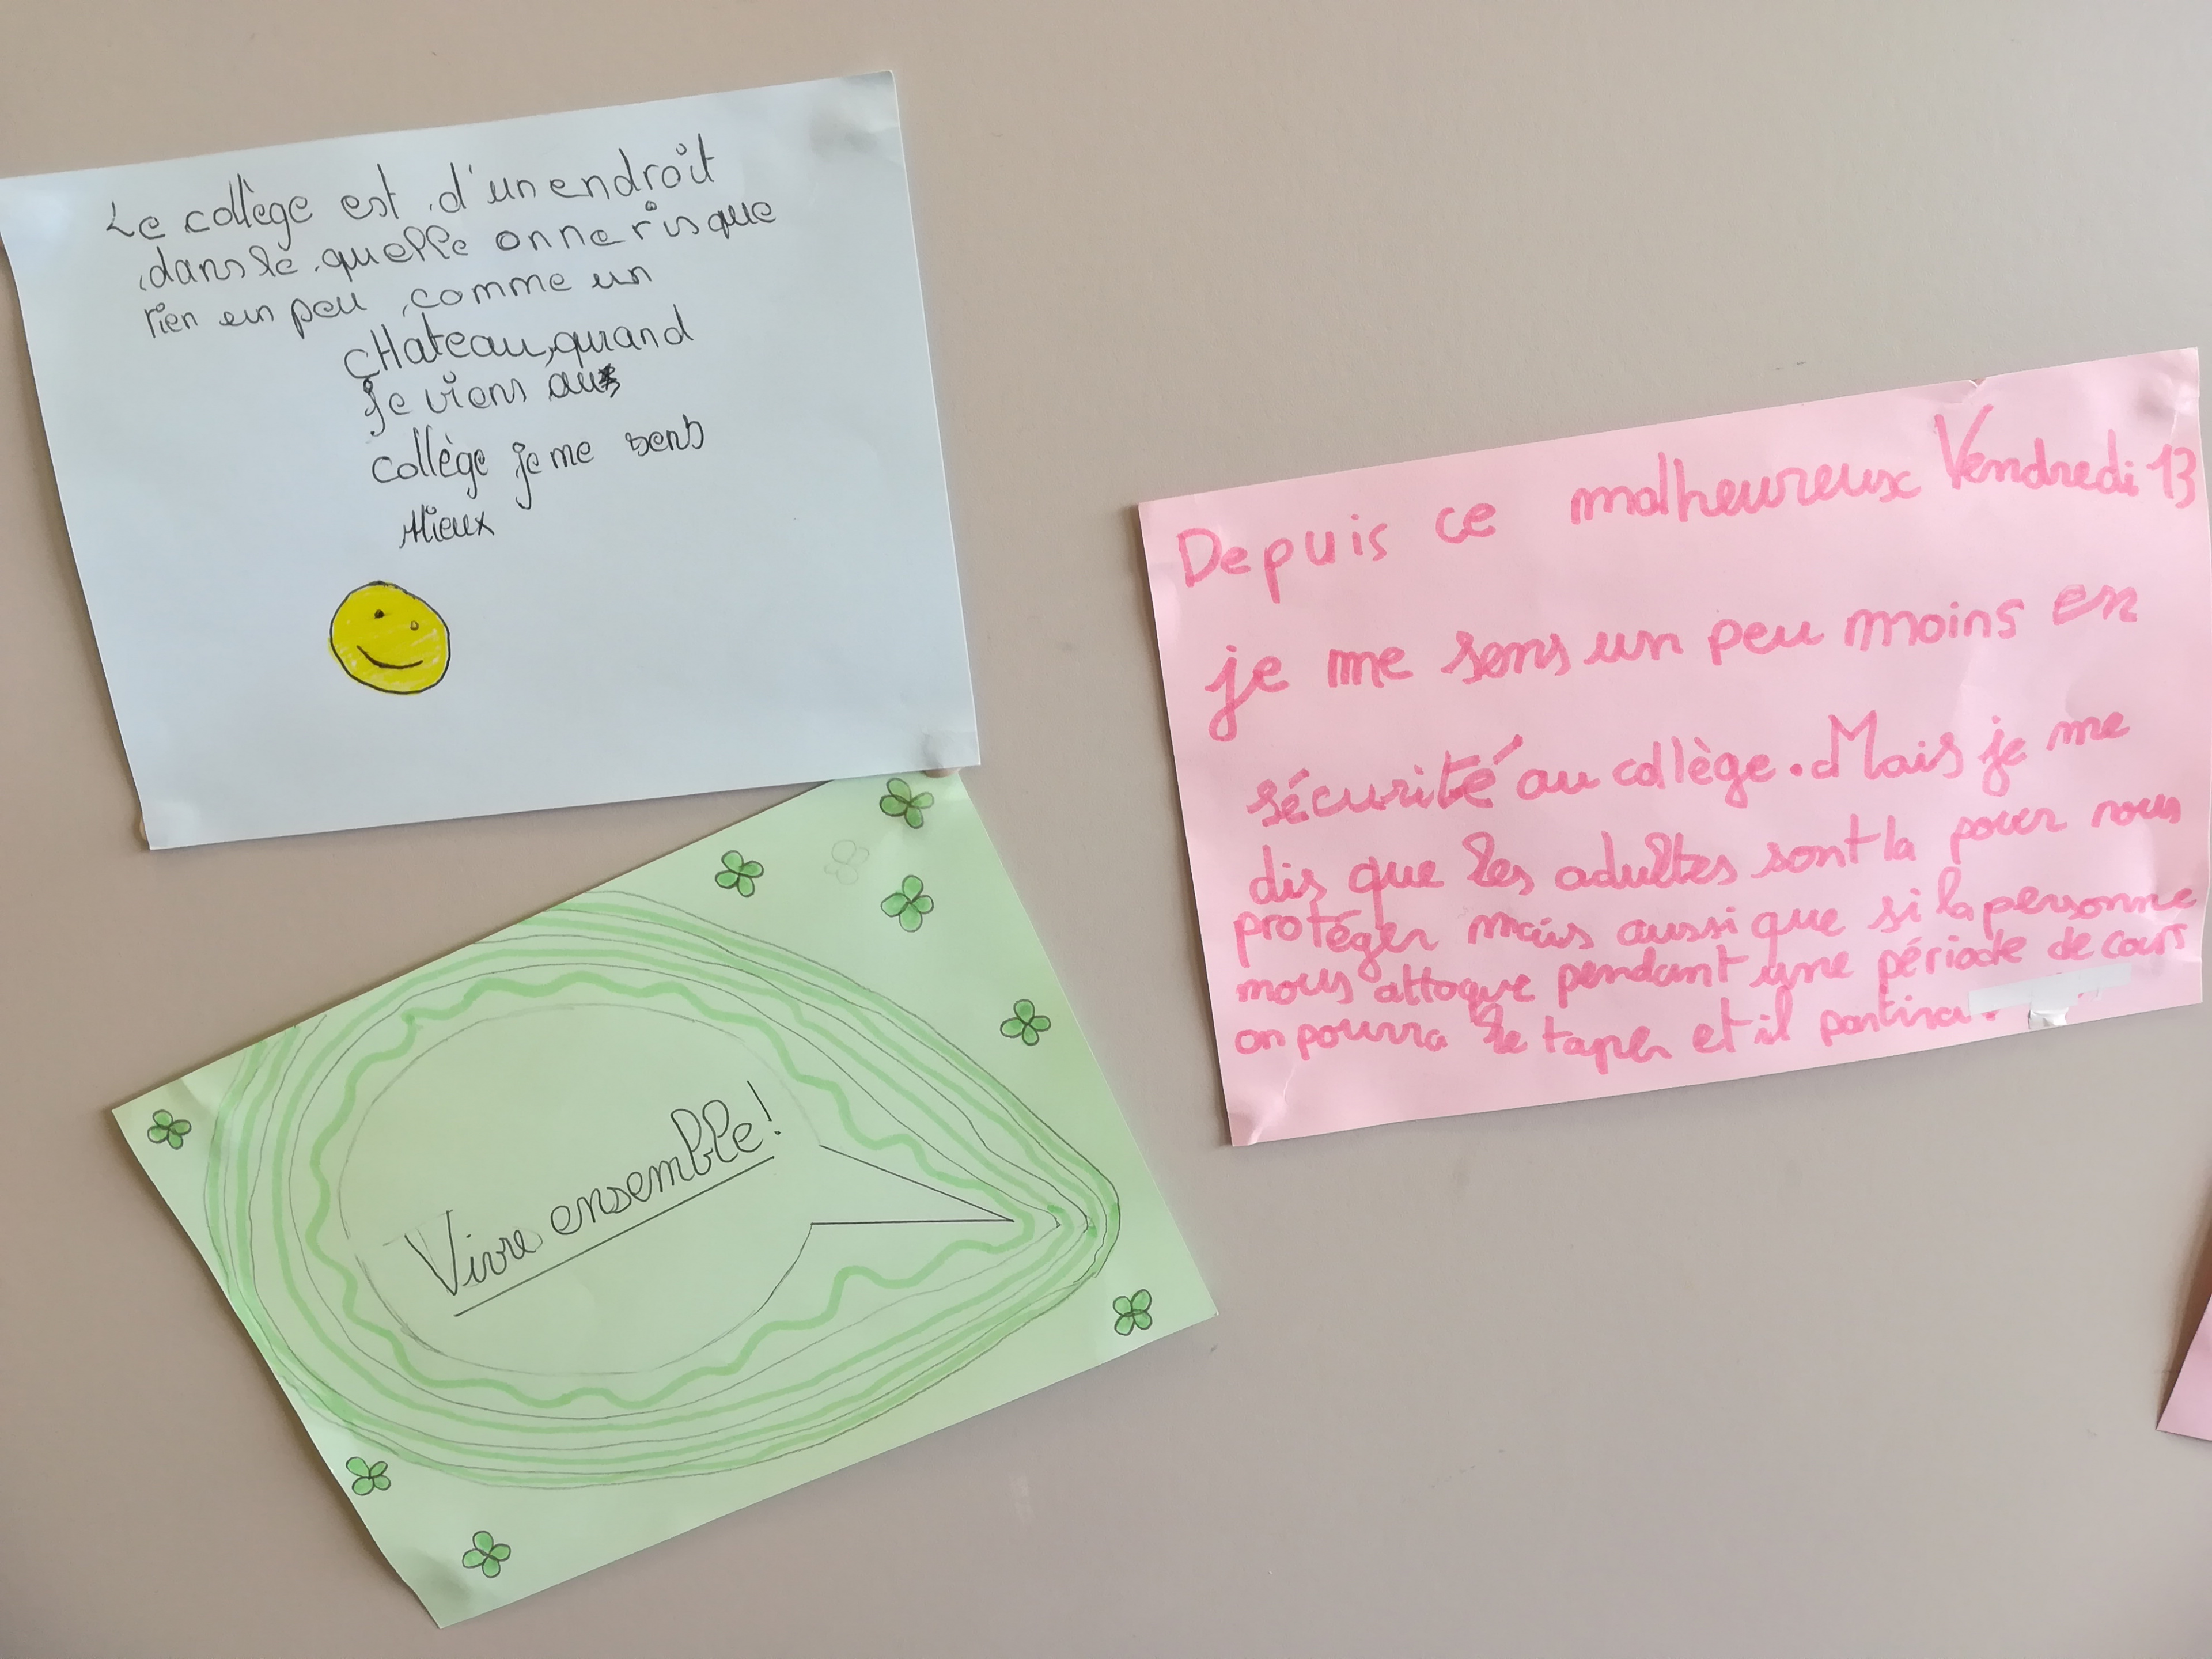 Le collège est d'un endroit
dans le quelle on ne risque
rien un peu comme un
cHateau, quand
je viens au
collège je me sens
Mieux
Vivre ensemble!
Depuis ce malheureux Vendredi 13
je me sens un peu moins en
sécurité au collège. Mais je me
dis que les adultes sont la pour nous
protéger mais aussi que si la personne
nous attaque pendant une période de cours
on pourra le taper et il partira.